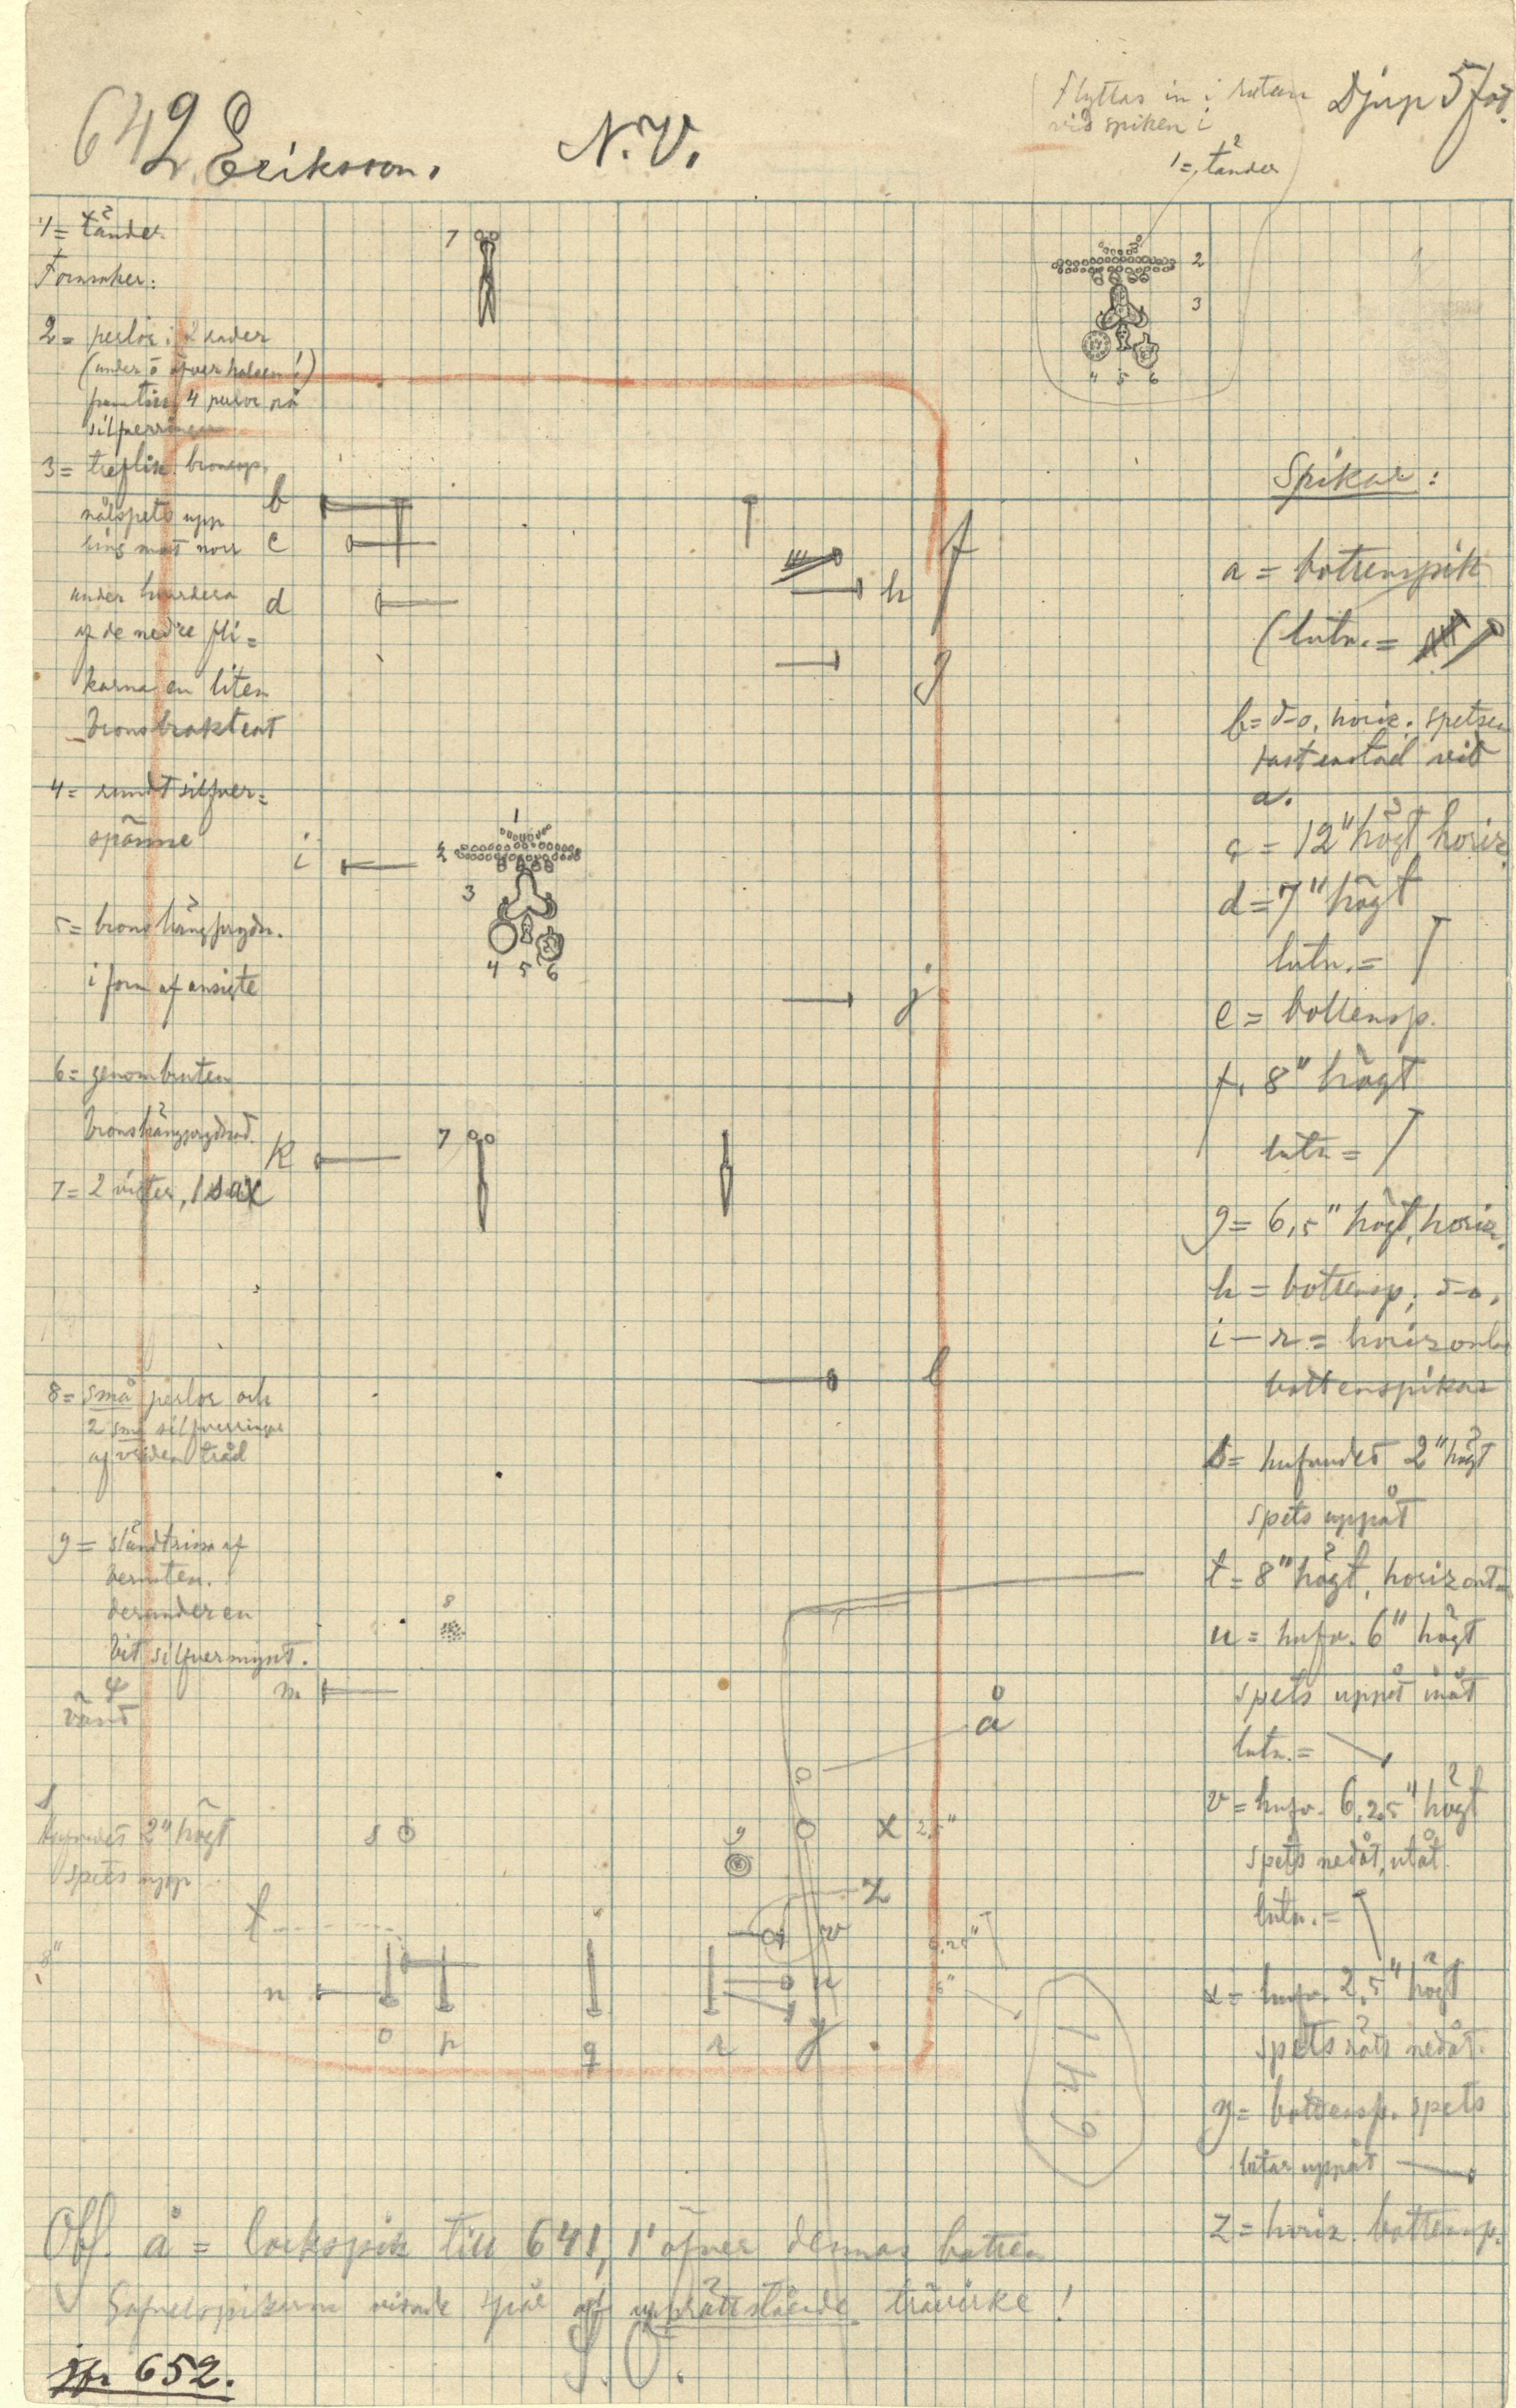 642 Eriksson.
N.V.
Flyttas in i rutan
vid spiken i
Djup 5 fot.
1 = tänder
1 = tänder
Fornsaker:
2 = perlor i 2 rader
(under o öfver halsen!)
framtill 4 perlor på
silfverringar
3 = treflik. bronssp.
nålspets upp
hing mot norr
under hvardera
af de nedre fli=
karna en liten
bronsbrakteat
4 = rundt silfver=
spänne
5 = bronshängprydn.
i form af ansigte
6 = genombruten
bronshängprydnad.
7 = 2 , 1 sax
8 = små perlor och
2 små silfverringar
af vriden tråd
9 = sländtrissa af
bernsten.
derunder en
bit silfvermynt.
vänd
s
hufvudet 2" högt
spets upp
8"
7
2
3
4 5 6
b
c
d
h
f
g
i
1
2
3
4 5 6
j
k
7
l
8
m
å
s
9
x 2,5"
z
t
v
6,25"
n
u
6"
o
p
q
r
y
641
Spikar:
a = bottenspik
(lutn. =
b = d-o, horiz. spetsen
fastrostad vid
a.
c = 12" högt, horiz.
d = 7" högt
lutn. =
e = bottensp.
f. 8" högt
lutn =
g = 6,5" högt, horiz.
h = bottensp; d-o.
i — r = horizontla
bottenspikar
s = hufvudet 2" högt
spets uppåt
t = 8" högt, horizont=
u = hufv. 6" högt
spets uppåt inåt
lutn. =
v = hufv. 6,25" högt
spets nedåt, utåt.
lutn. =
x = hufv. 2,5" högt
spets rätt nedåt.
y = bottensp. spets
lutar uppåt
z = horiz. bottensp.
Obs. å = lockspik till 641, 1' öfver dennas botten
Gafvelspikarna visade spår af upprättstående trävirke!
Jfr 652.